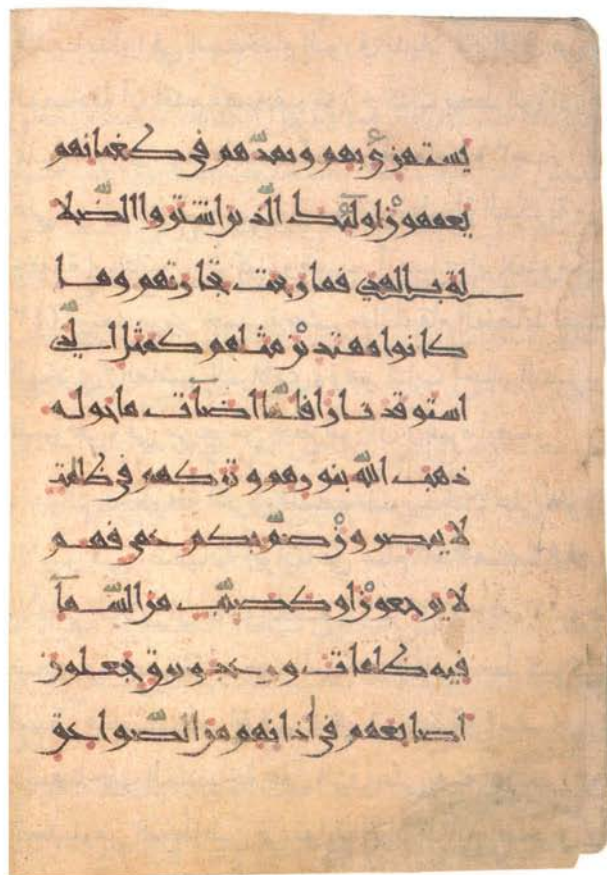 يستهزئ بهم ويمدهم في طغينهم
يعمهون اولئك الذين اشتروا الضلا
لة بالهدى فما ربحت تجارتهم وما
كانوا مهتدين مثلهم كمثل الذي
استوقد نارا فلما اضات ما حوله
ذهب الله بنورهم وتركهم في ظلمت
لا يبصرون صم بكم عمي فهم
لا يرجعون او كصيب من السما
فيه ظلمات ورعد وبرق يجعلون
اصابعهم في اذانهم من الصواعق